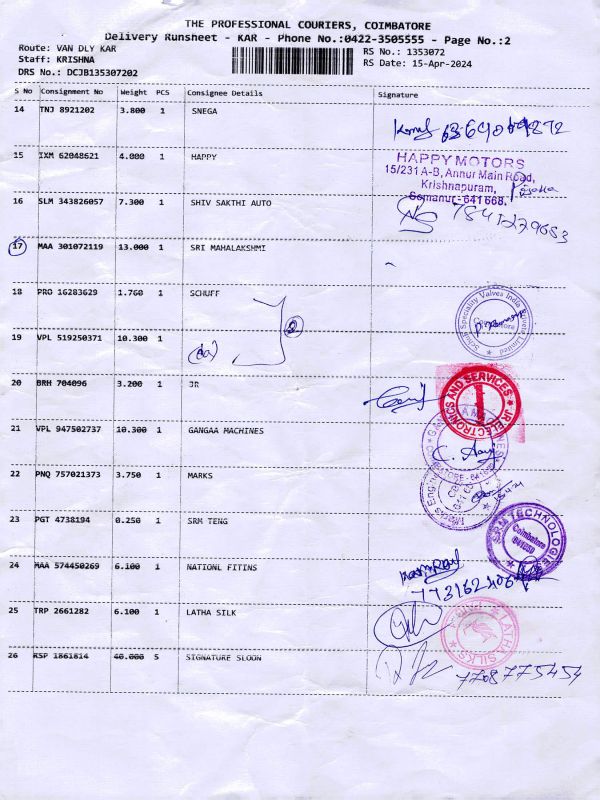 THE PROFESSIONAL COURIERS, COIMBATORE
Delivery Runsheet - KAR - Phone No.:0422-3505555 - Page No.:2
Route: VAN DLY KAR
Staff: KRISHNA
DRS No.: DCJB135307202
RS No.: 1353072
RS Date: 15-Apr-2024
S No Consignment No Weight PCS Consignee Details Signature
14 TNJ 8921202 3.800 1 SNEGA
15 IXM 62048621 4.000 1 HAPPY
HAPPY MOTORS
15/231 A-B, Annur Main Road,
Krishnapuram,
Somanur-641 668.
16 SLM 343826057 7.300 1 SHIV SAKTHI AUTO
17 MAA 301072119 13.000 1 SRI MAHALAKSHMI
18 PRO 16283629 1.760 1 SCHUFF
19 VPL 519250371 10.300 1
20 BRH 704096 3.200 1 JR
JR ELECTRONICS AND SERVICES
21 VPL 947502737 10.300 1 GANGAA MACHINES
22 PNQ 757021373 3.750 1 MARKS
23 PGT 4738194 0.250 1 SRM TENG
SRM TECHNOLOGIE
Coimbatore
24 MAA 574450269 6.100 1 NATIONL FITINS
25 TRP 2661282 6.100 1 LATHA SILK
LATHA SILKS
26 RSP 1861814 40.000 5 SIGNATURE SLOON
7708775454